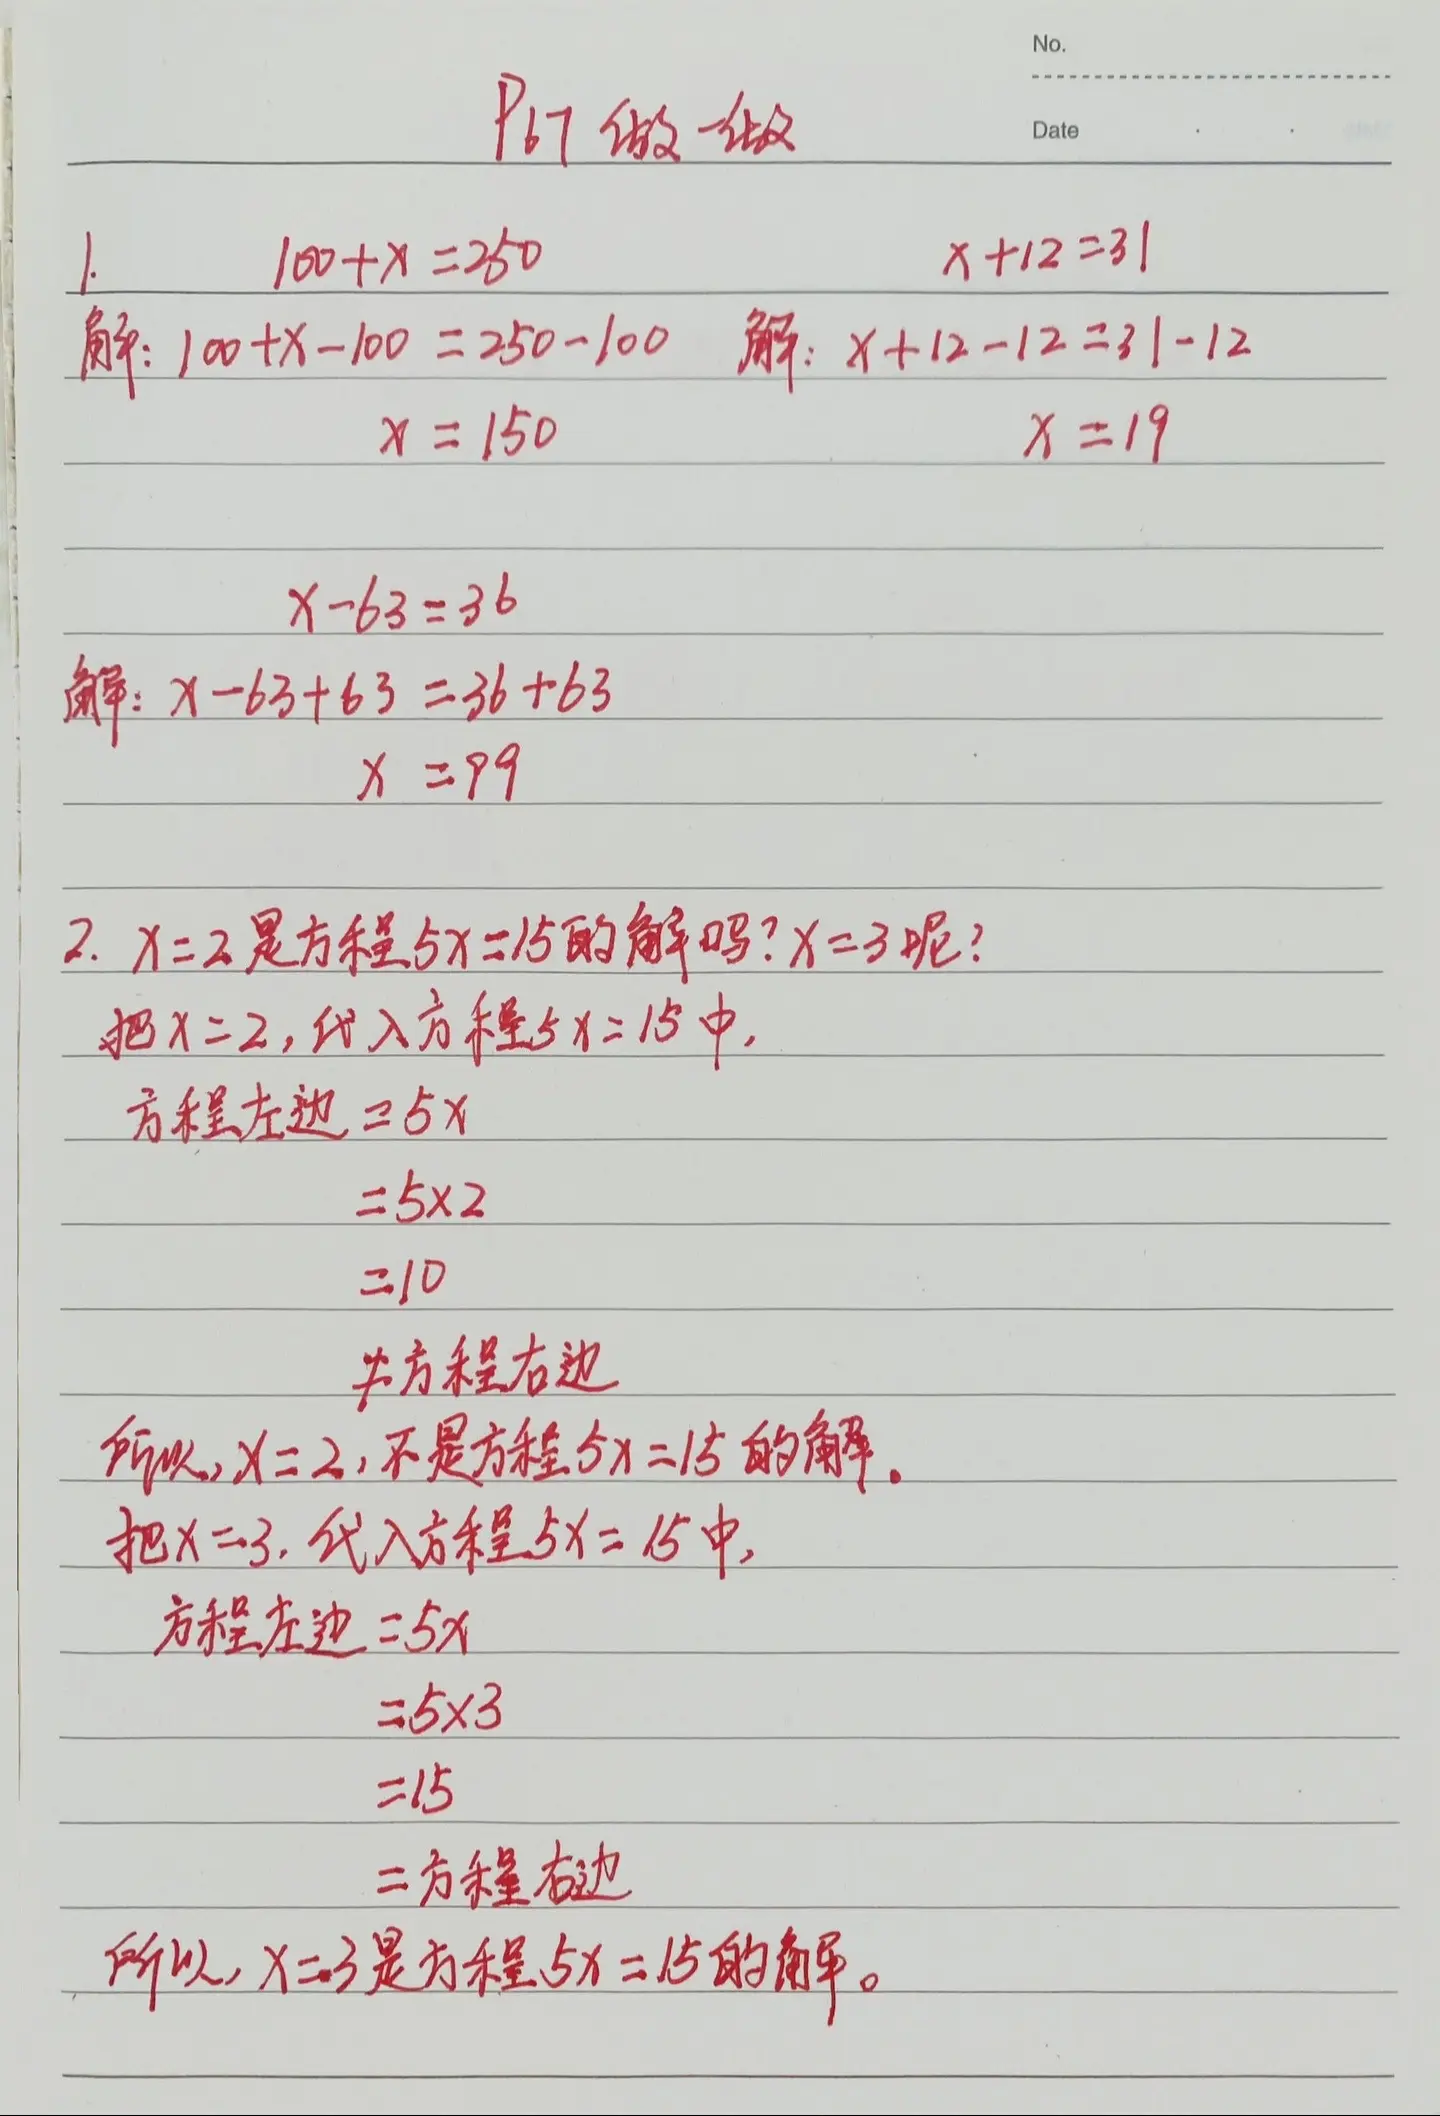 No.
P67 做一做
Date
1. 100+x=250 x+12=31
解：100+x-100=250-100 解：x+12-12=31-12
x=150 x=19
x-63=36
解：x-63+63=36+63
x=99
2. x=2是方程5x=15的解吗？x=3呢？
把x=2，代入方程5x=15中，
方程左边=5x
=5×2
=10
≠方程右边
所以，x=2，不是方程5x=15的解。
把x=3，代入方程5x=15中，
方程左边=5x
=5×3
=15
=方程右边
所以，x=3是方程5x=15的解。